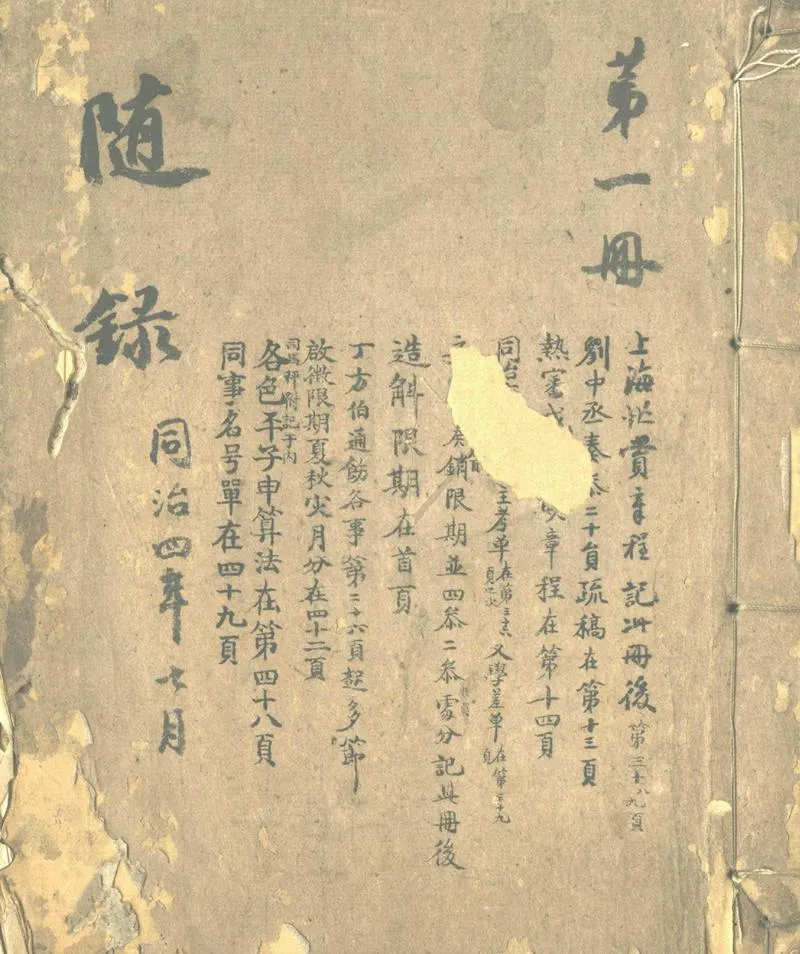 第一冊
上海捐賞章程記此冊後第三十八九頁
劉中丞奏叅二十員疏稿在第十三頁
熱審 章程在第十四頁
同治 主考單在第三十 頁之次 又學差單在第三十九頁
銷限期並四叅二叅處分記此冊後
造觧限期在首頁
丁方伯通飭各事第二十六頁起多節
啟徵限期夏秋尖月分在四十二頁
司馬秤附記于内
各色平子申算法在第四十八頁
同事名号單在四十九頁
同治四年七月
随录